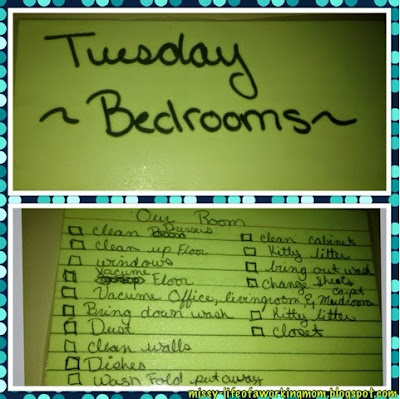 Tuesday
~ Bedrooms ~
Our Room
clean Dressers
clean up Floor
windows
Vacume Floor
Vacume Office, livingroom, & Mudroom
Bring down wash
Dust
clean walls
Dishes
Wash Fold put away
clean cabinet
Kitty litter
bring out wash
change sheets
carpet
Kitty litter
closet
missy-lifeofaworkingmom.blogspot.com